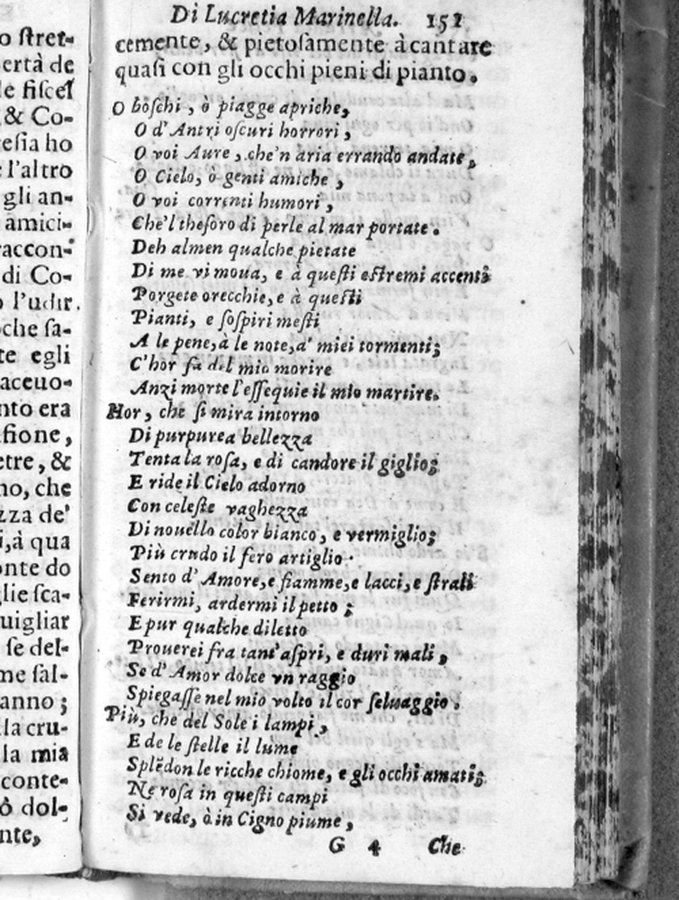 o stret-
ertà de
le fiscel
, & Co-
resia ho
e l'altro
gli an-
amici-
raccon-
di Co-
o l'udir.
che sa-
te egli
aceuo-
nto era
fione,
etre, &
no, che
zza de'
i, à qua
onte do
glie sca-
uigliar
se del-
me sal-
anno;
lla cru-
la mia
conte-
ô dol-
nte,
Di Lucretia Marinella. 151
cemente, & pietosamente à cantare
quasi con gli occhi pieni di pianto.
O boschi, ò piagge apriche,
O d'Antri oscuri horrori,
O voi Aure, che'n aria errando andate,
O Cielo, ò genti amiche,
O voi correnti humori,
Che'l thesoro di perle al mar portate.
Deh almen qualche pietate
Di me vi moua, e à questi estremi accenti
Porgete orecchie, e à questi
Pianti, e sospiri mesti
A le pene, à le note, a' miei tormenti;
C'hor fa del mio morire
Anzi morte l'essequie il mio martire.
Hor, che si mira intorno
Di purpurea bellezza
Tenta la rosa, e di candore il giglio;
E ride il Cielo adorno
Con celeste vaghezza
Di nouello color bianco, e vermiglio;
Più crudo il fero artiglio
Sento d'Amore, e fiamme, e lacci, e strali
Ferirmi, ardermi il petto;
E pur qualche diletto
Prouerei fra tant'aspri, e duri mali,
Se d'Amor dolce vn raggio
Spiegasse nel mio volto il cor seluaggio.
Più, che del Sole i lampi,
E de le stelle il lume
Splēdon le ricche chiome, e gli occhi amati;
Ne rosa in questi campi
Si vede, ò in Cigno piume,
G 4 Che